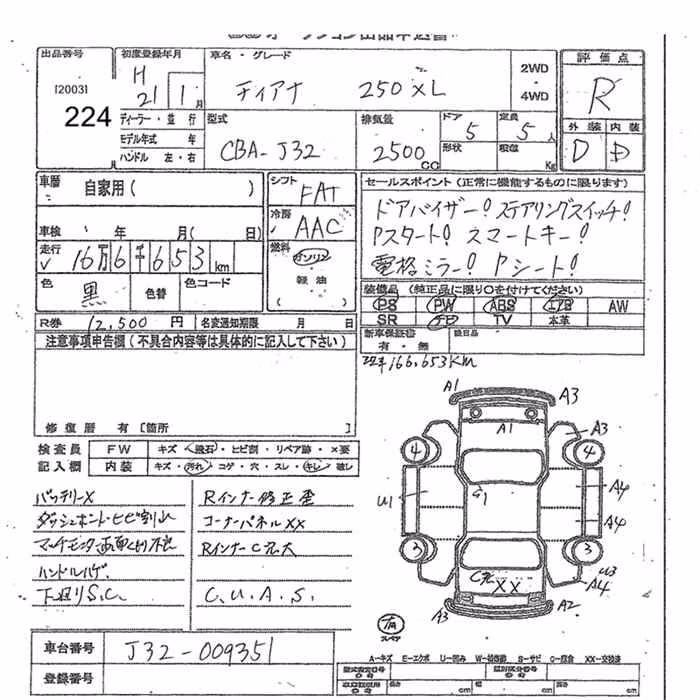 出品番号
[2003]
224
初度登録年月
H
21 1月
ディーラー・並行
モデル年式 年
ハンドル 左・右
車名・グレード
ティアナ 250XL
2WD
4WD
評価点
R
外装 内装
D D
型式
CBA-J32
排気量
2500cc
ドア
5
定員
5人
形状
積載
Kg
車歴
自家用( )
車検 年 月( 日)
走行
✓ 16万6千653km
色
黒
色替
色コード
シフト
FAT
冷房
AAC
燃料
ガソリン
軽油
( )
セールスポイント(正常に機能するものに限ります)
ドアバイザー! ステアリングスイッチ!
Pスタート! スマートキー!
電格ミラー! Pシート!
装備品(純正品に限り○を付けてください)
PS PW ABS エアB AW
SR TV 本革
新車保証書
有・無
後日品
R券 12,500円
名変通知期限 月 日
注意事項申告欄(不具合内容等は具体的に記入して下さい)
166,653KM
修復歴 有[箇所 ]
検査員
記入欄
FW キズ・飛石・ヒビ割・リペア跡・X要
内装 キズ・汚れ・コゲ・穴・スレ・キレ・破レ
バッテリーX
ダッシュボード・ヒビ割れ
マルチモニター画面くもり不良
ハンドルハゲ
下廻りS.C.
Rインナー修正歪
コーナーパネルXX
RインナーC穴大
C.U.A.S.
A1
A3
A1
A3
4
4
U1
G1
A4
A4
3
3
U3
A4
C穴
XX
A3
A2
有
スペア
車台番号
J32-009351
登録番号
A-キズ E-エクボ U-凹み W-補修跡 S-サビ C-腐食 XX-交換済
長さ cm
cm
cm